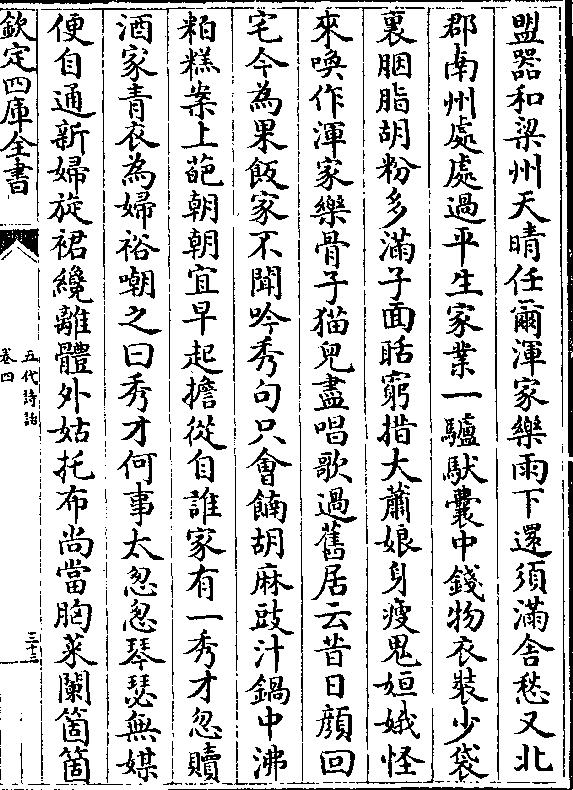 盟器和梁州天晴任爾渾家樂雨下還須滿舍愁又北
郡南州處處過平生家業一驢馱囊中錢物衣裝少袋
裏胭脂胡粉多滿子面甛窮措大蕭娘身瘦鬼姮娥怪
來喚作渾家樂骨子猫兒盡唱歌過舊居云昔日顔回
宅今為果飯家不聞吟秀句只會餪胡麻豉汁鍋中沸
粕糕案上葩朝朝宜早起擔從自誰家有一秀才忽贖
酒家青衣為婦裕嘲之曰秀才何事太忽忽琴瑟無媒
便自通新婦旋裙纔離體外姑托布尚當胸菜闌箇箇
欽定四庫全書
五代詩話
卷四
三十三